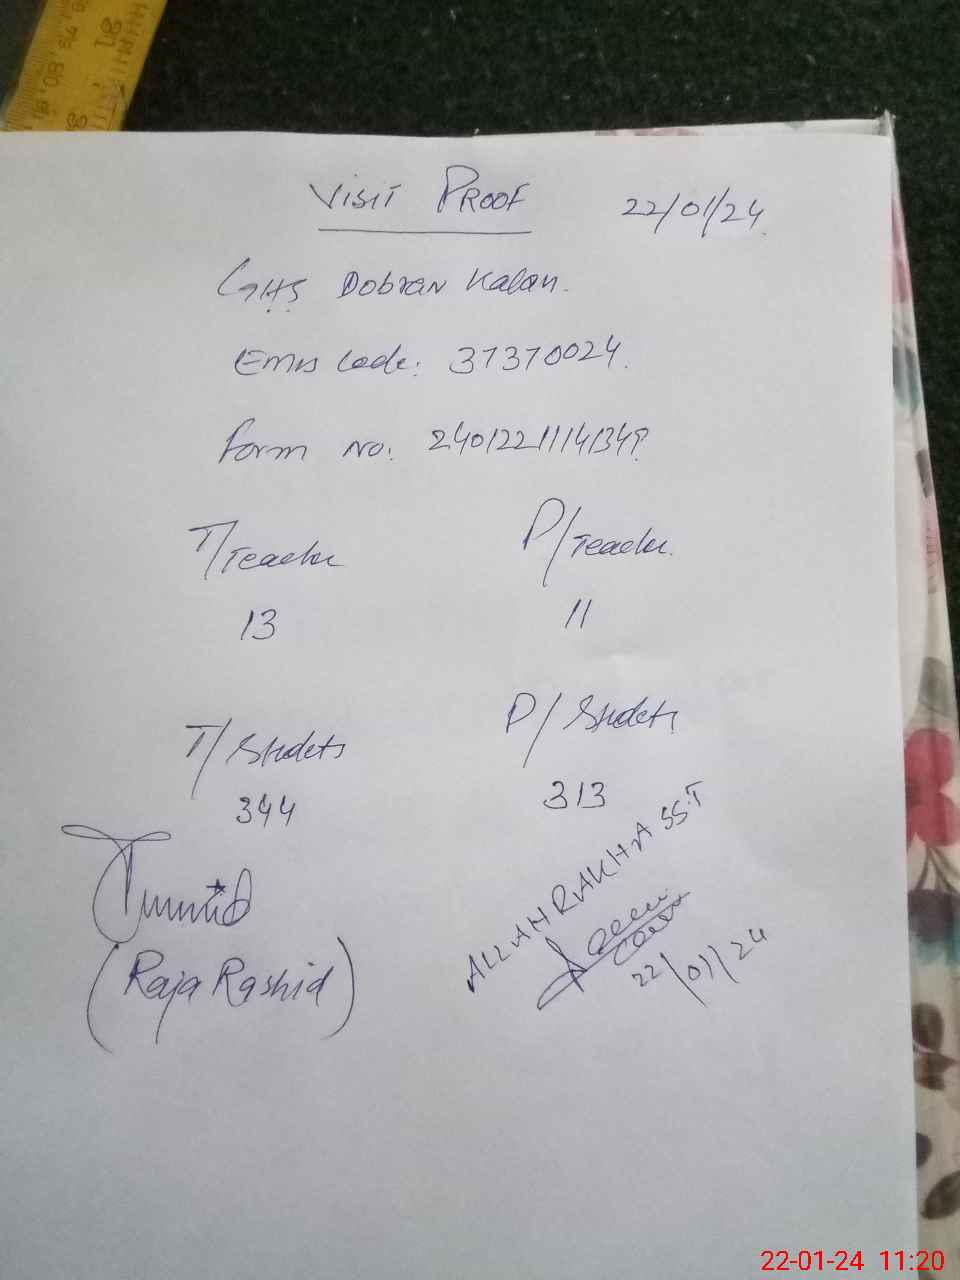 VISIT PROOF 22/01/24
GHS Dobran Kalan.
Emis Code: 37370024.
Form No:
T/Teacher P/Teacher.
13 11
T/Studets P/Studets
344 313
ALLAH RAKHA SS.T
(Raja Rashid)
22/01/24
22-01-24 11:20